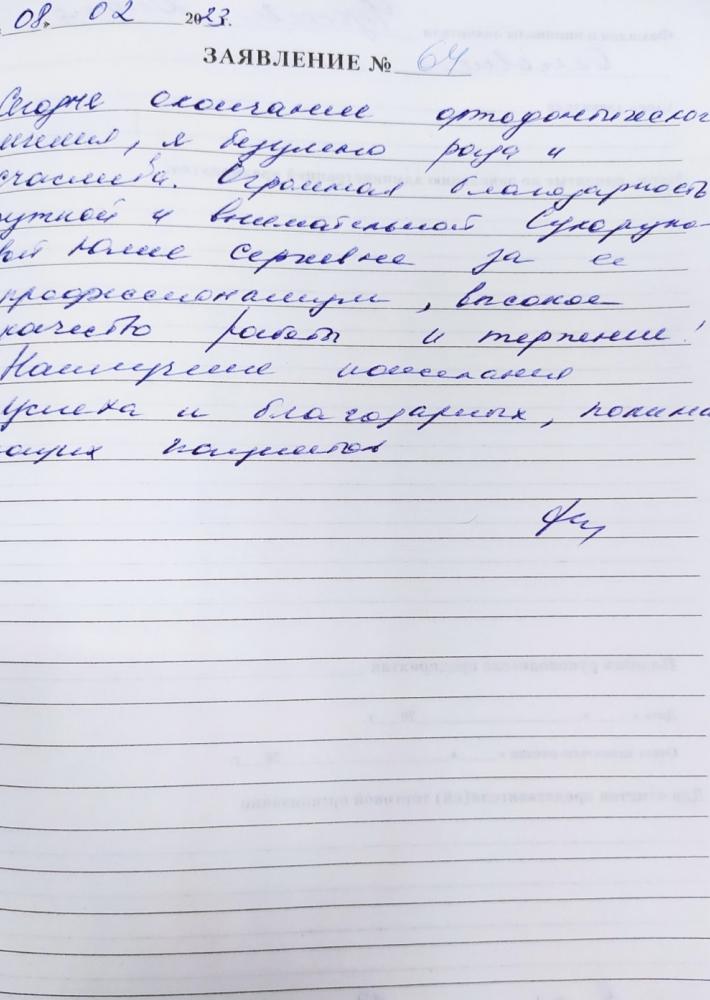 08. 02 2023.
ЗАЯВЛЕНИЕ № 64
Сегодня окончание ортодонтическог
лечения, я безумно рада и
счастлива. Огромная благодарность
чуткой и внимательной Сухоруко-
вой Юлие Сергеевне за ее
профессионализм, высокое
качество работы и терпение!
Наилучшие пожелания
успеха и благодарных, понима
ющих пациентов